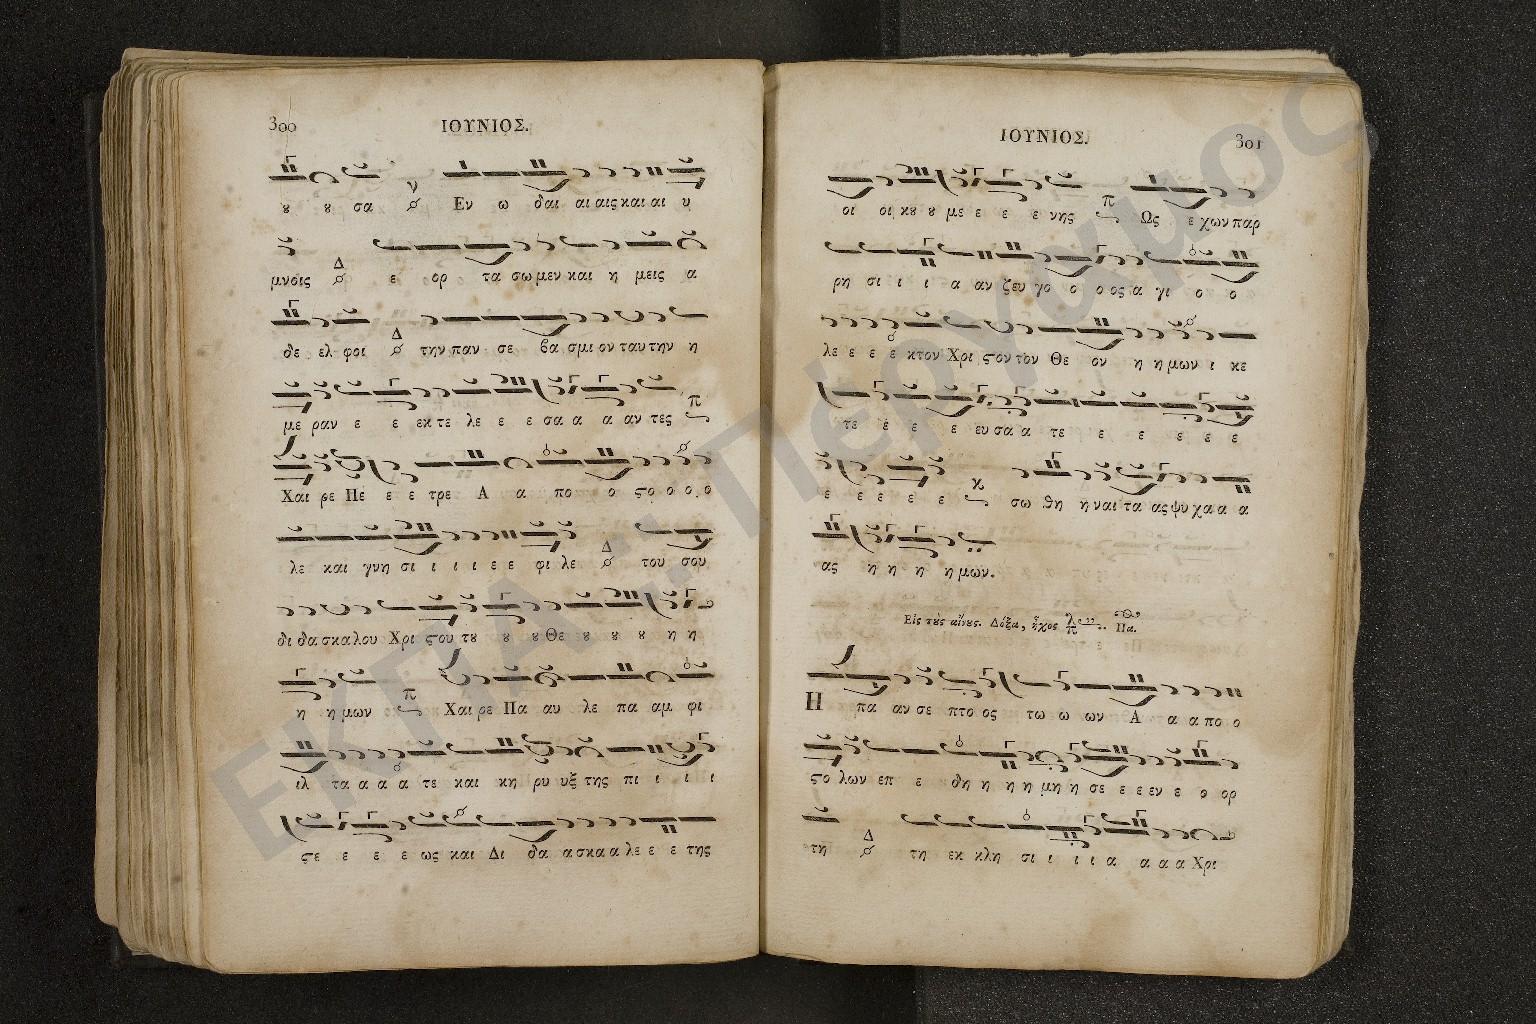 300
ΙΟΥΝΙΟΣ.
ȣ ȣ σα Εν ω δαι αι αις και αι υ
μνοις Δ ε ορ τα σω μεν και η μεις α
δε ελ φοι Δ την παν σε βα σμι ον ταυ την η
με ραν ε ε εκ τε λε ε ε σα α α αν τες π
Χαι ρε Πε ε ε τρε Α α πο ο ϛο ο ο ο
λε και γνη σι ι ι ι ε ε φι λε Δ του σου
δι δα σκα λου Χρι ϛου τȣ ȣ ȣ Θε ȣ ȣ ȣ η η
η η μων π Χαι ρε Πα αυ λε πα αμ φι
ιλ τα α α α τε και κη ρυ υξ της πι ι ι ι
ϛε ε ε ε ως και Δι δα α σκα α λε ε ε της
ΙΟΥΝΙΟΣ.
301
οι οι κȣ ȣ με ε ε ε νης π Ως ε χων παρ
ρη σι ι ι α αν ζευ γο ο ο ος α γι ο ο
λε ε ε ε κτον Χρι ϛον τον Θε ον η η μων ι κε
τε ε ε ε ευ σα α τε ε ε ε ε ε
ε ε ε ε ε κ σω θη η ναι τα ας ψυ χα α α
ας η η η η μων.
Εἰς τȣ̀ς αἴνȣς. Δόξα, ἦχος λ π Πα.
Η πα αν σε πτο ος τω ω ων Α α α πο ο
ϛο λων επ ε δη η η η μη η σε ε ε εν ε ο ορ
τη Δ τη εκ κλη σι ι ι ι α α α α Χρι
ΕΚΠΑ :: Πέργαμος